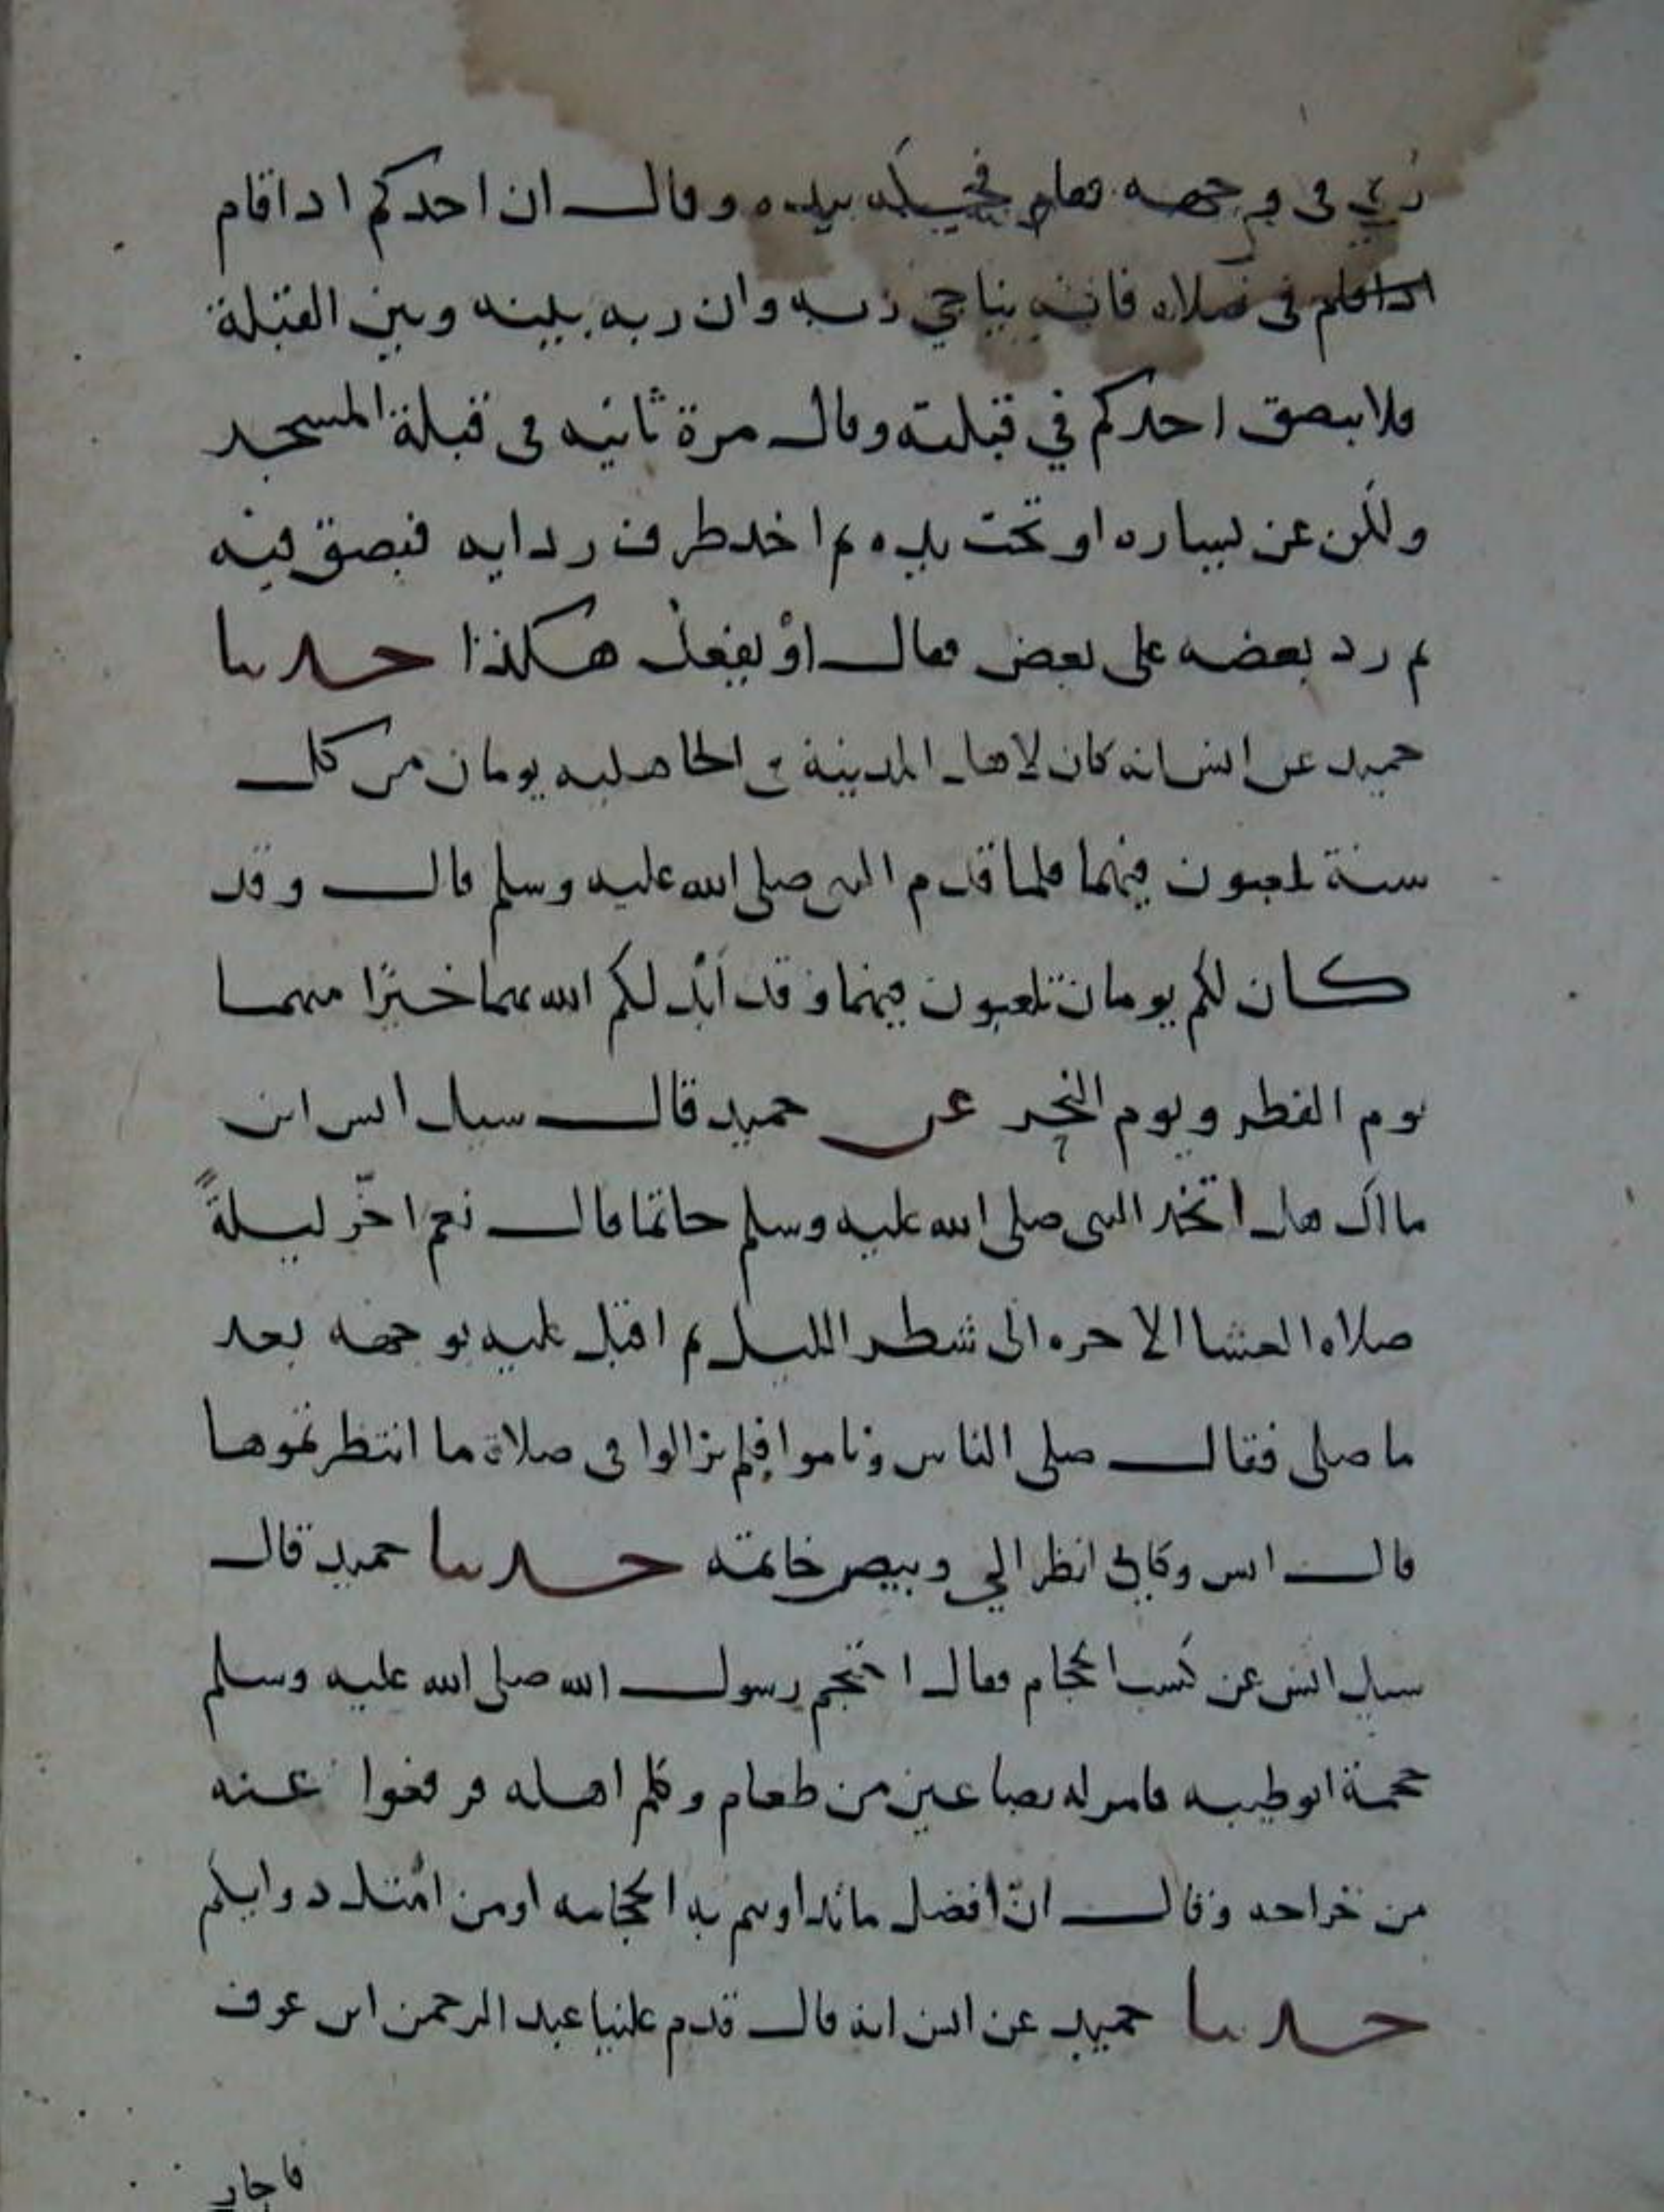 رئي في وجهه فقام فحكه بيده وقال ان احدكم اداقام
اداقام في صلاه فانه يناجي ربه وان ربه بينه وبين القبلة
فلا يبصق احدكم في قبلته وقال مرة ثانيه في قبلة المسجد
ولكن عن يساره او تحت يده ثم اخد طرف ردايه فبصق فيه
ثم رد بعضه على بعض فقال او يفعل هكذا حدثنا
حميد عن انس انه كان لاهل المدينة في الجاهليه يومان من كل
سنة يلعبون فيهما فلما قدم النبي صلى الله عليه وسلم قال وقد
كان لكم يومان تلعبون فيهما وقد ابدلكم الله بهما خيرا منهما
يوم الفطر ويوم النحر عن حميد قال سيل انس ابن
مالك هل اتخد النبي صلى الله عليه وسلم خاتما قال نعم اخر ليلة
صلاه العشا الاخره الى شطر الليل ثم اقبل عليه بوجهه بعد
ما صلى فقال صلى الناس وناموا فلم يزالوا في صلاة ما انتظرتموها
قال انس وكاني انظر الي وبيص خاتمه حدثنا حميد قال
سيل انس عن كسب الحجام فقال احتجم رسول الله صلى الله عليه وسلم
حجمة ابوطيبه فامر له بصاعين من طعام وكلم اهله فرفعوا عنه
من خراجه وقال ان افضل ما تداويتم به الحجامه او من امثل دوايكم
حدثنا حميد عن انس انه قال قدم علينا عبد الرحمن ابن عوف
فاخا